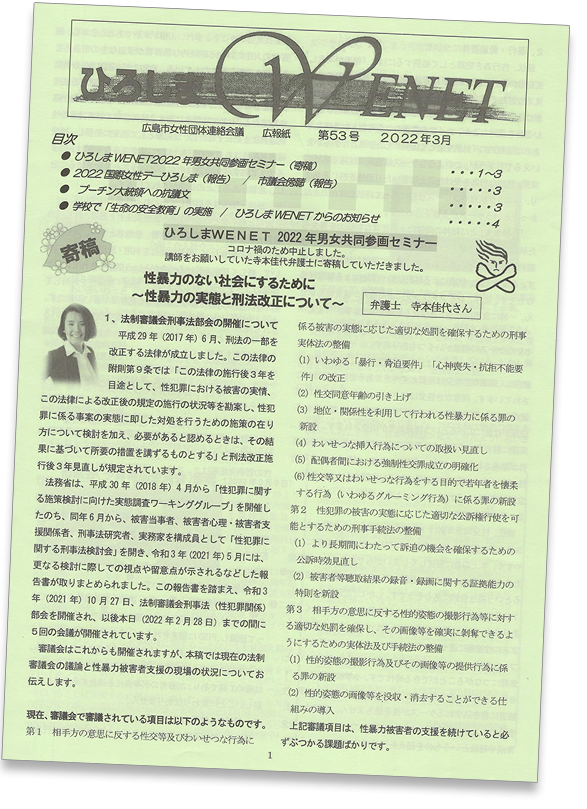 ひろしま WENET
広島市女性団体連絡会議 広報紙 第53号 2022年3月
目次
● ひろしま WENET2022 年男女共同参画セミナー（寄稿） ・・・1～3
● 2022 国際女性デーひろしま（報告） / 市議会傍聴（報告） ・・・・・3
● プーチン大統領への抗議文 ・・・・・3
● 学校で「生命の安全教育」の実施 / ひろしま WENET からのお知らせ ・・・・・4
寄稿
ひろしまWENET 2022 年男女共同参画セミナー
コロナ禍のため中止しました。
講師をお願いしていた寺本佳代弁護士に寄稿していただきました。
性暴力のない社会にするために
～性暴力の実態と刑法改正について～
弁護士 寺本佳代さん
1、法制審議会刑事法部会の開催について
平成29年（2017年）6月、刑法の一部を
改正する法律が成立しました。この法律の
附則第9条では「この法律の施行後3年を
目途として、性犯罪における被害の実情、
この法律による改正後の規定の施行の状況等を勘案し、性犯
罪に係る事案の実態に即した対処を行うための施策の在り
方について検討を加え、必要があると認めるときは、その結
果に基づいて所要の措置を講ずるものとする」と刑法改正施
行後3年見直しが規定されています。
法務省は、平成30年（2018年）4月から「性犯罪に関す
る施策検討に向けた実態調査ワーキンググループ」を開催し
たのち、同年6月から、被害当事者、被害者心理・被害者支
援関係者、刑事法研究者、実務家を構成員として「性犯罪に
関する刑事法検討会」を開き、令和3年（2021年）5月には、
更なる検討に際しての視点や留意点が示されるなどした報
告書が取りまとめられました。この報告書を踏まえ、令和3
年（2021年）10月27日、法制審議会刑事法（性犯罪関係）
部会を開催され、以後本日（2022年2月28日）までの間に
5回の会議が開催されています。
審議会はこれからも開催されますが、本稿では現在の法制
審議会の議論と性暴力被害者支援の現場の状況についてお
伝えします。
現在、審議会で審議されている項目は以下のようなものです。
第1 相手方の意思に反する性交等及びわいせつな行為に
係る被害の実態に応じた適切な処罰を確保するための刑事
実体法の整備
(1) いわゆる「暴行・脅迫要件」「心神喪失・抗拒不能要
件」の改正
(2) 性交同意年齢の引き上げ
(3) 地位・関係性を利用して行われる性暴力に係る罪の
新設
(4) わいせつな挿入行為についての取扱い見直し
(5) 配偶者間における強制性交罪成立の明確化
(6) 性交等又はわいせつな行為をする目的で若年者を懐柔
する行為（いわゆるグルーミング行為）に係る罪の新設
第2 性犯罪の被害の実態に応じた適切な公訴権行使を可
能とするための刑事手続法の整備
(1) より長期間にわたって訴追の機会を確保するための
公訴時効見直し
(2) 被害者等聴取結果の録音・録画に関する証拠能力の
特則を新設
第3 相手方の意思に反する性的姿態の撮影行為等に対す
る適切な処罰を確保し、その画像等を確実に剝奪できるよ
うにするための実体法及び手続法の整備
(1) 性的姿態の撮影行為及びその画像等の提供行為に係
る罪の新設
(2) 性的姿態の画像等を没収・消去することができる仕
組みの導入
上記審議項目は、性暴力被害者の支援を続けていると必
ずぶつかる課題ばかりです。
1